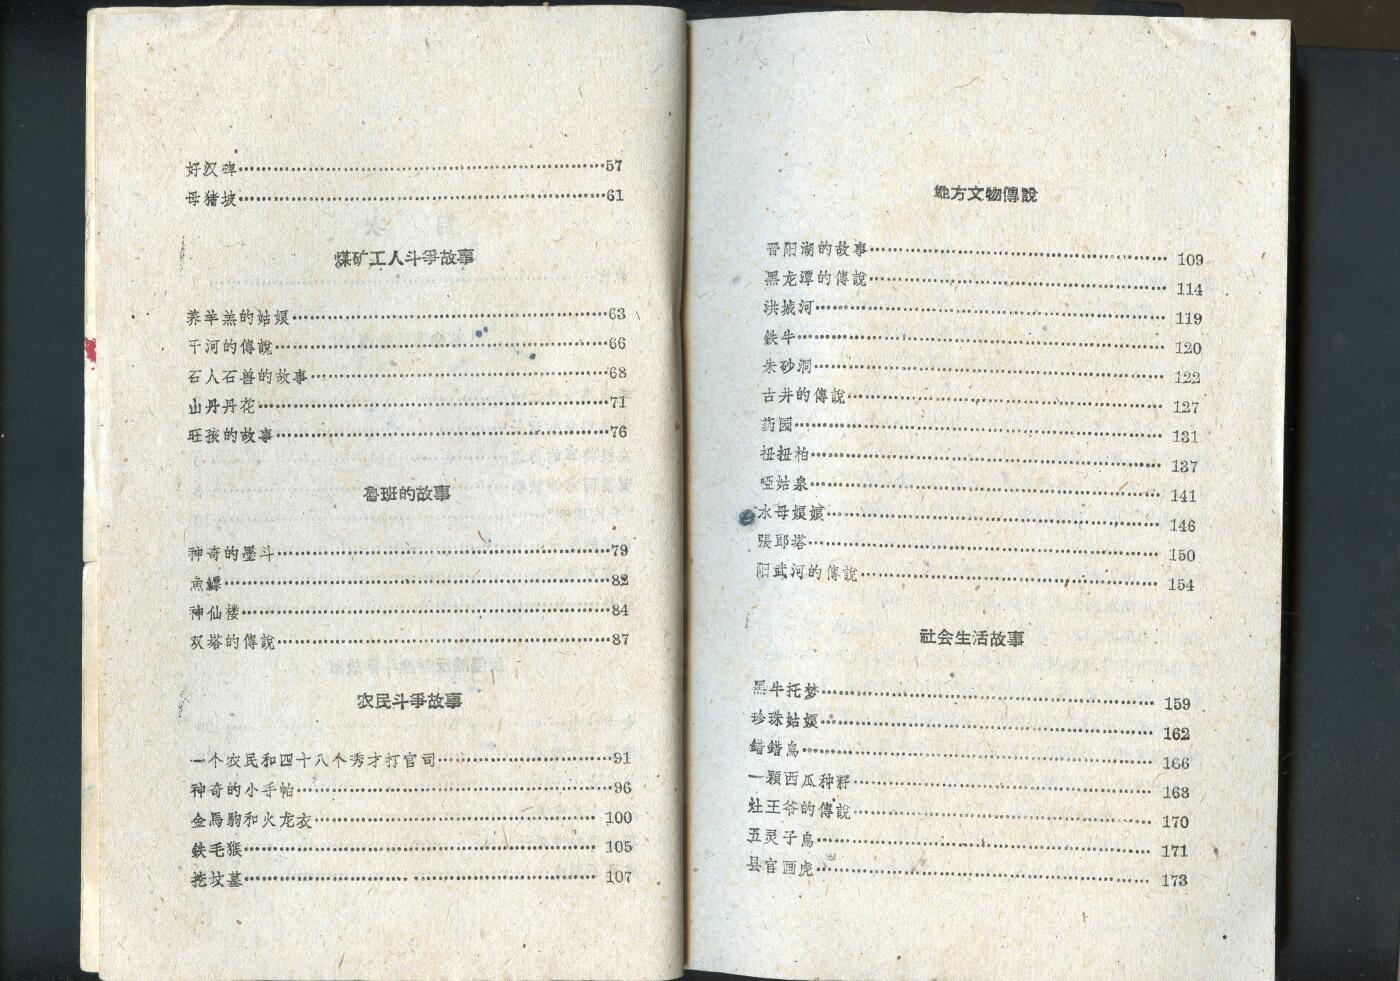 好汉碑……57
母猪坡……61
煤矿工人斗爭故事
养羊羔的姑娘……63
干河的傳說……66
石人石兽的故事……68
山丹丹花……71
旺孩的故事……76
魯班的故事
神奇的墨斗……79
魚鰾……82
神仙楼……84
双塔的傳說……87
农民斗爭故事
一个农民和四十八个秀才打官司……91
神奇的小手帕……96
金馬駒和火龙衣……100
鉄毛猴……105
挖坟墓……107
地方文物傳說
晋阳湖的故事……109
黑龙潭的傳說……114
洪城河……119
鉄牛……120
朱砂洞……122
古井的傳說……127
药园……131
扭扭柏……137
哑姑泉……141
水母娘娘……146
張郎塔……150
阳武河的傳說……154
社会生活故事
黑牛托梦……159
珍珠姑娘……162
錯錯鳥……166
一顆西瓜种籽……168
灶王爷的傳說……170
五灵子鳥……171
县官画虎……173